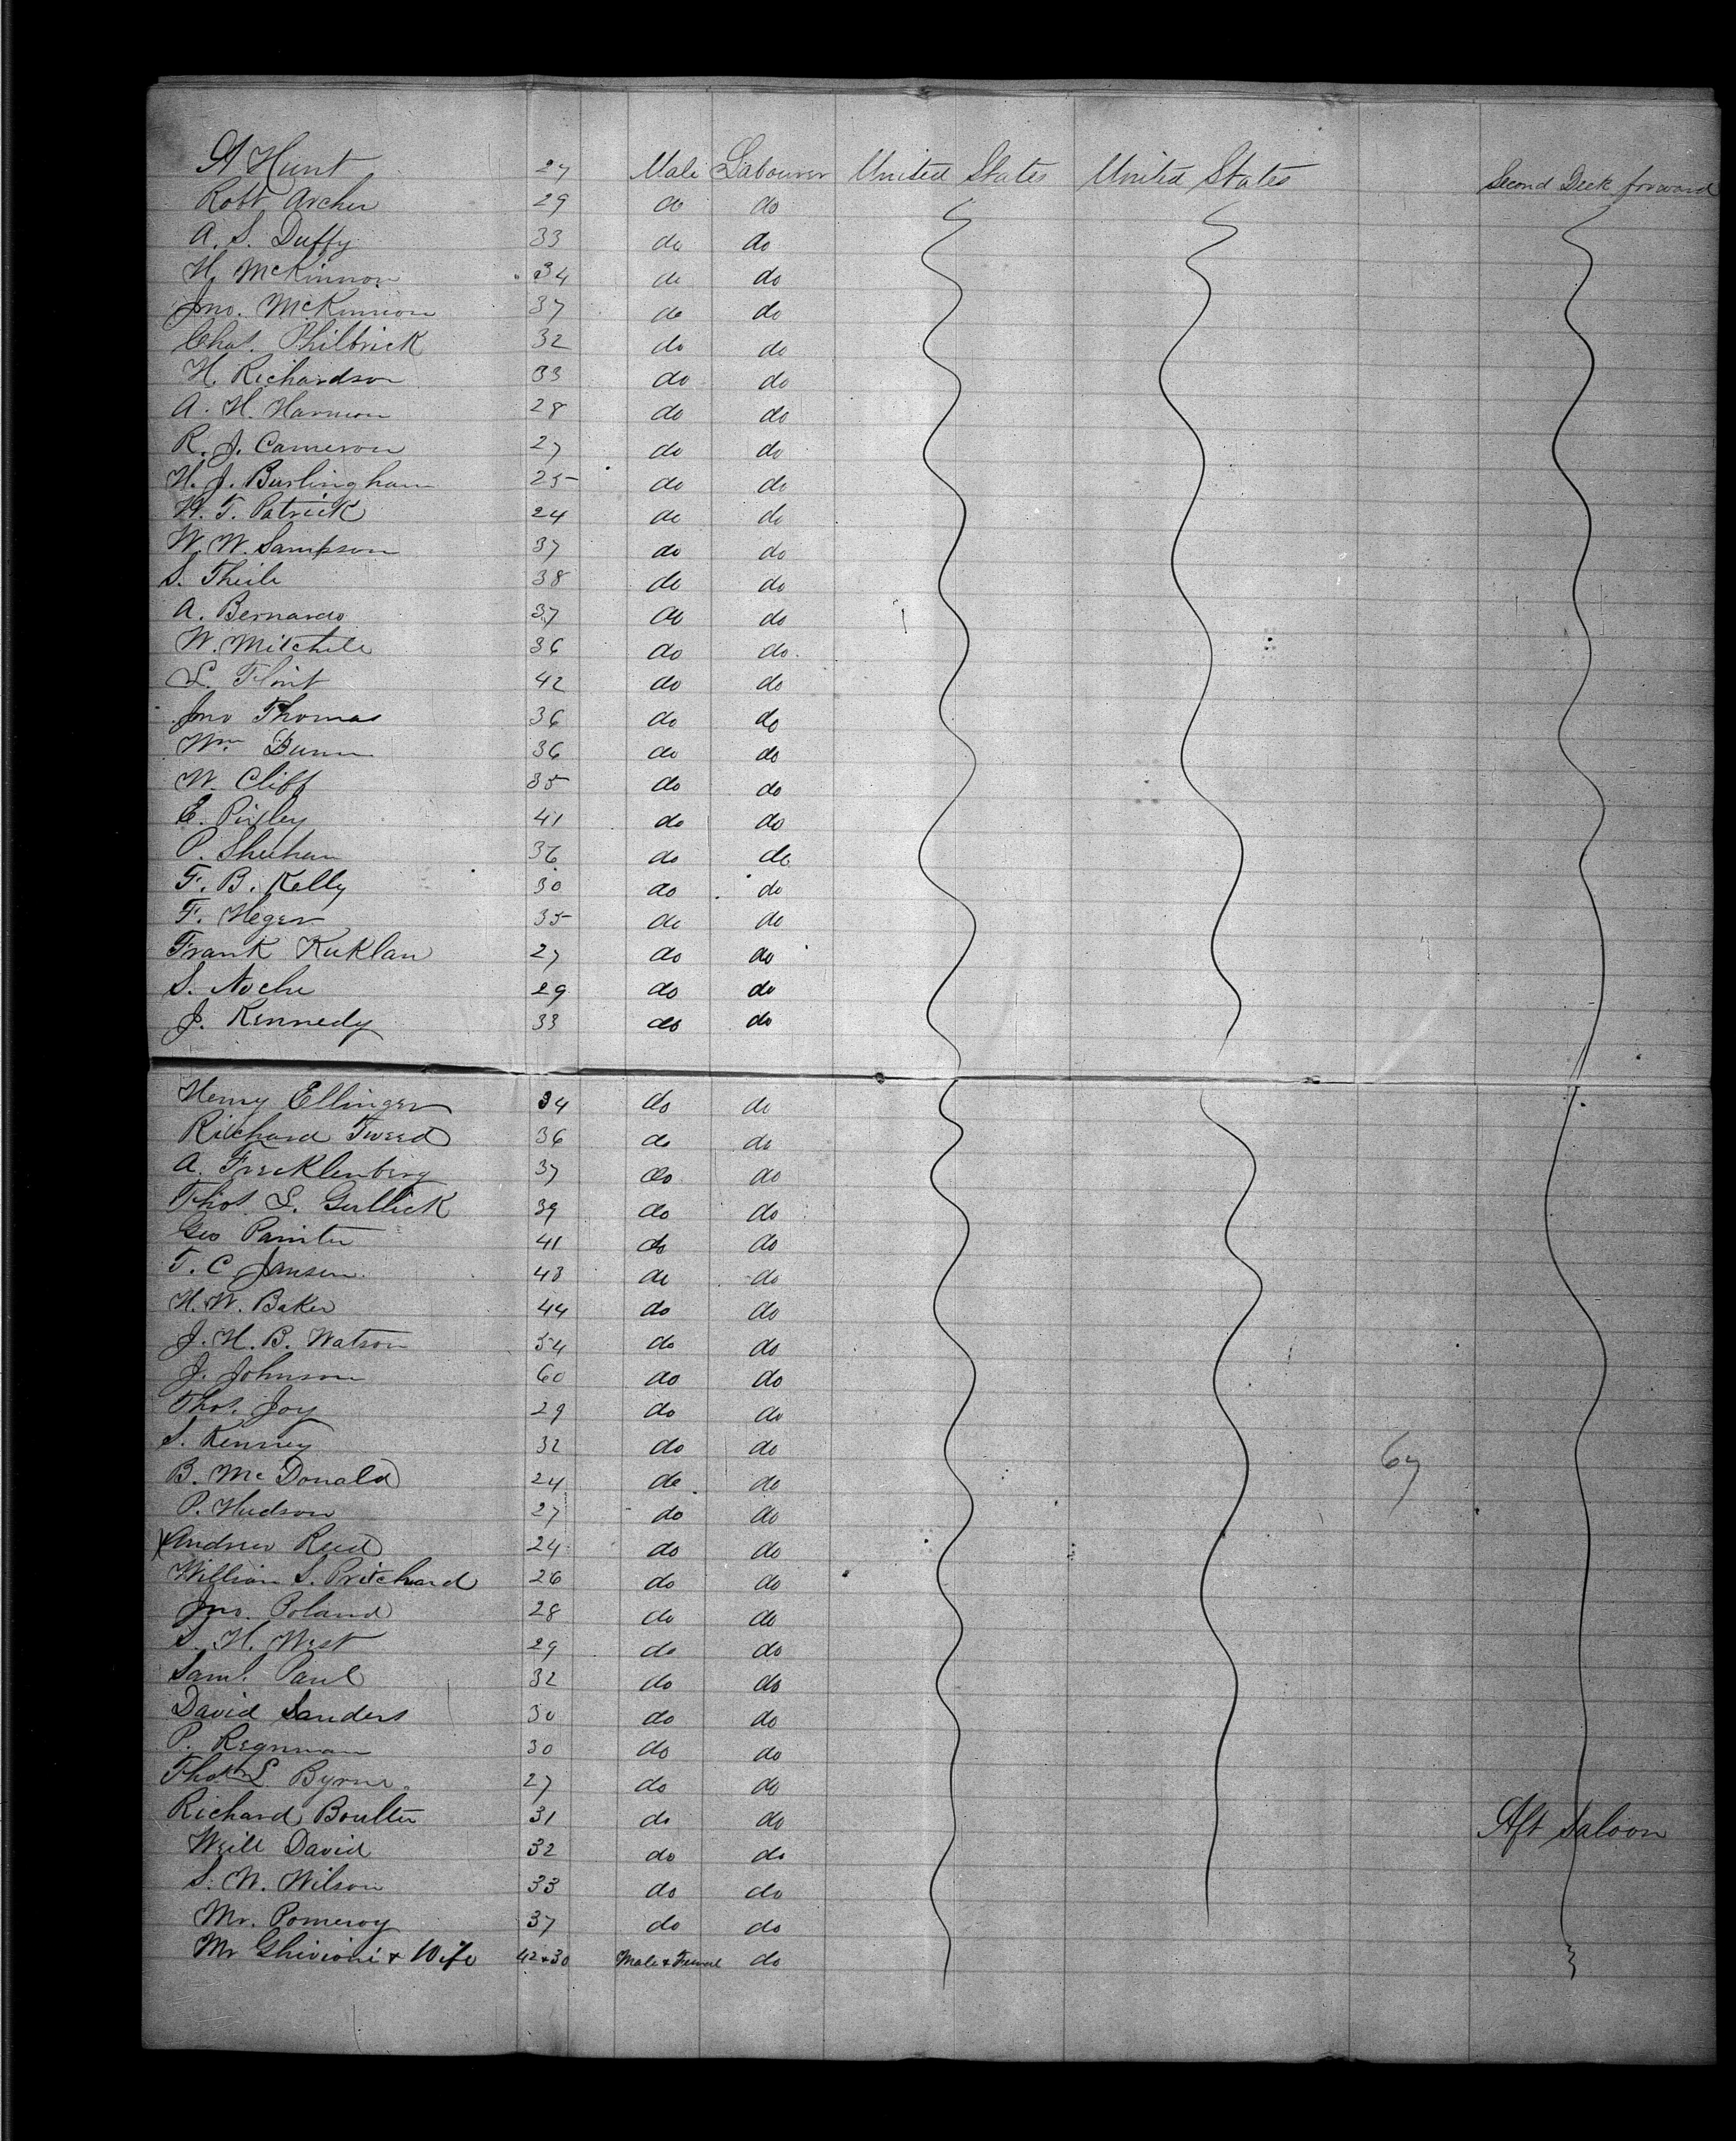 A Hunt 27 Male Labourer United States United States Second Deck forward
Robt Archer 29 do do
A. S. Duffy 33 do do
H. McKinnon 34 do do
Jno. McKinnon 37 do do
Chas. Philbrick 32 do do
H. Richardson 33 do do
A. H. Harmon 28 do do
R. J. Cameron 27 do do
H. J. Burlingham 25 do do
H. T. Patrick 24 do do
W. W. Sampson 37 do do
S. Theile 38 do do
A. Bernardo 37 do do
W. Mitchele 36 do do
L. Flint 42 do do
Jno Thomas 36 do do
Wm Dunn 36 do do
W. Cliff 35 do do
E. Pixley 41 do do
P. Sheehan 36 do do
F. B. Kelly 30 do do
F. Heger 35 do do
Frank Kuklan 27 do do
S. Noche 29 do do
J. Kennedy 33 do do
Henry Ellinger 34 do do
Richard Tweed 36 do do
A. Frecklenberg 37 do do
Thos. S. Gullick 39 do do
Geo Painter 41 do do
T. C Jansen 43 do do
H. W. Baker 44 do do
J. H. B. Watson 54 do do
J. Johnson 60 do do
Thos. Joy 29 do do
S. Kenney 32 do do 67
B. McDonald 24 do do
P. Hudson 27 do do
Andrew Reed 24 do do
William S. Pritchard 26 do do
Jno. Poland 28 do do
S. H. West 29 do do
Saml. Paul 32 do do
David Sanders 30 do do
P. Regnman 30 do do
Thos L. Byrne 27 do do
Richard Boulter 31 do do Aft Saloon
Weill David 32 do do
S. W. Wilson 33 do do
Mr. Pomeroy 37 do do
Mr Ghivioni & Wife 42 & 30 Male & Femal do